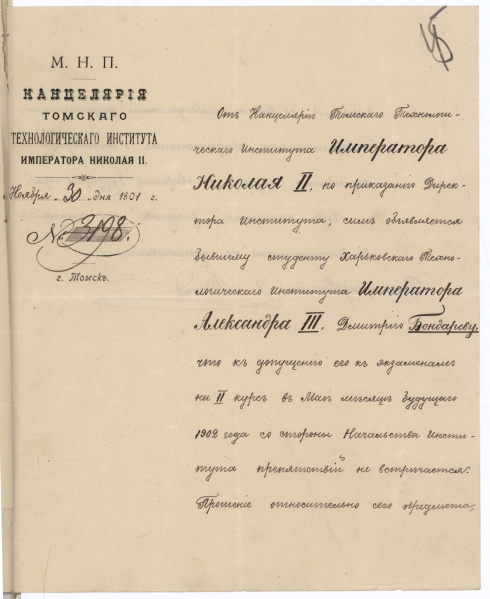 М. Н. П.
КАНЦЕЛЯРІЯ
ТОМСКАГО
ТЕХНОЛОГИЧЕСКАГО ИНСТИТУТА
ИМПЕРАТОРА НИКОЛАЯ II.
Ноября 30 дня 1901 г.
№ 3198.
г. Томскъ.
Отъ Канцеляріи Томскаго Техноло-
гическаго Института Императора
Николая II, по приказанію Дирек-
тора Института, симъ объявляется
бывшему студенту Харьковскаго Техно-
логическаго Института Императора
Александра III, Дмитрію Бондареву,
что къ допущенію его къ экзаменамъ
на II курсъ въ Маѣ мѣсяцѣ будущаго
1902 года со стороны Начальства Инсти-
тута препятствій не встрѣчается.
Прошеніе относительно сего предмета,